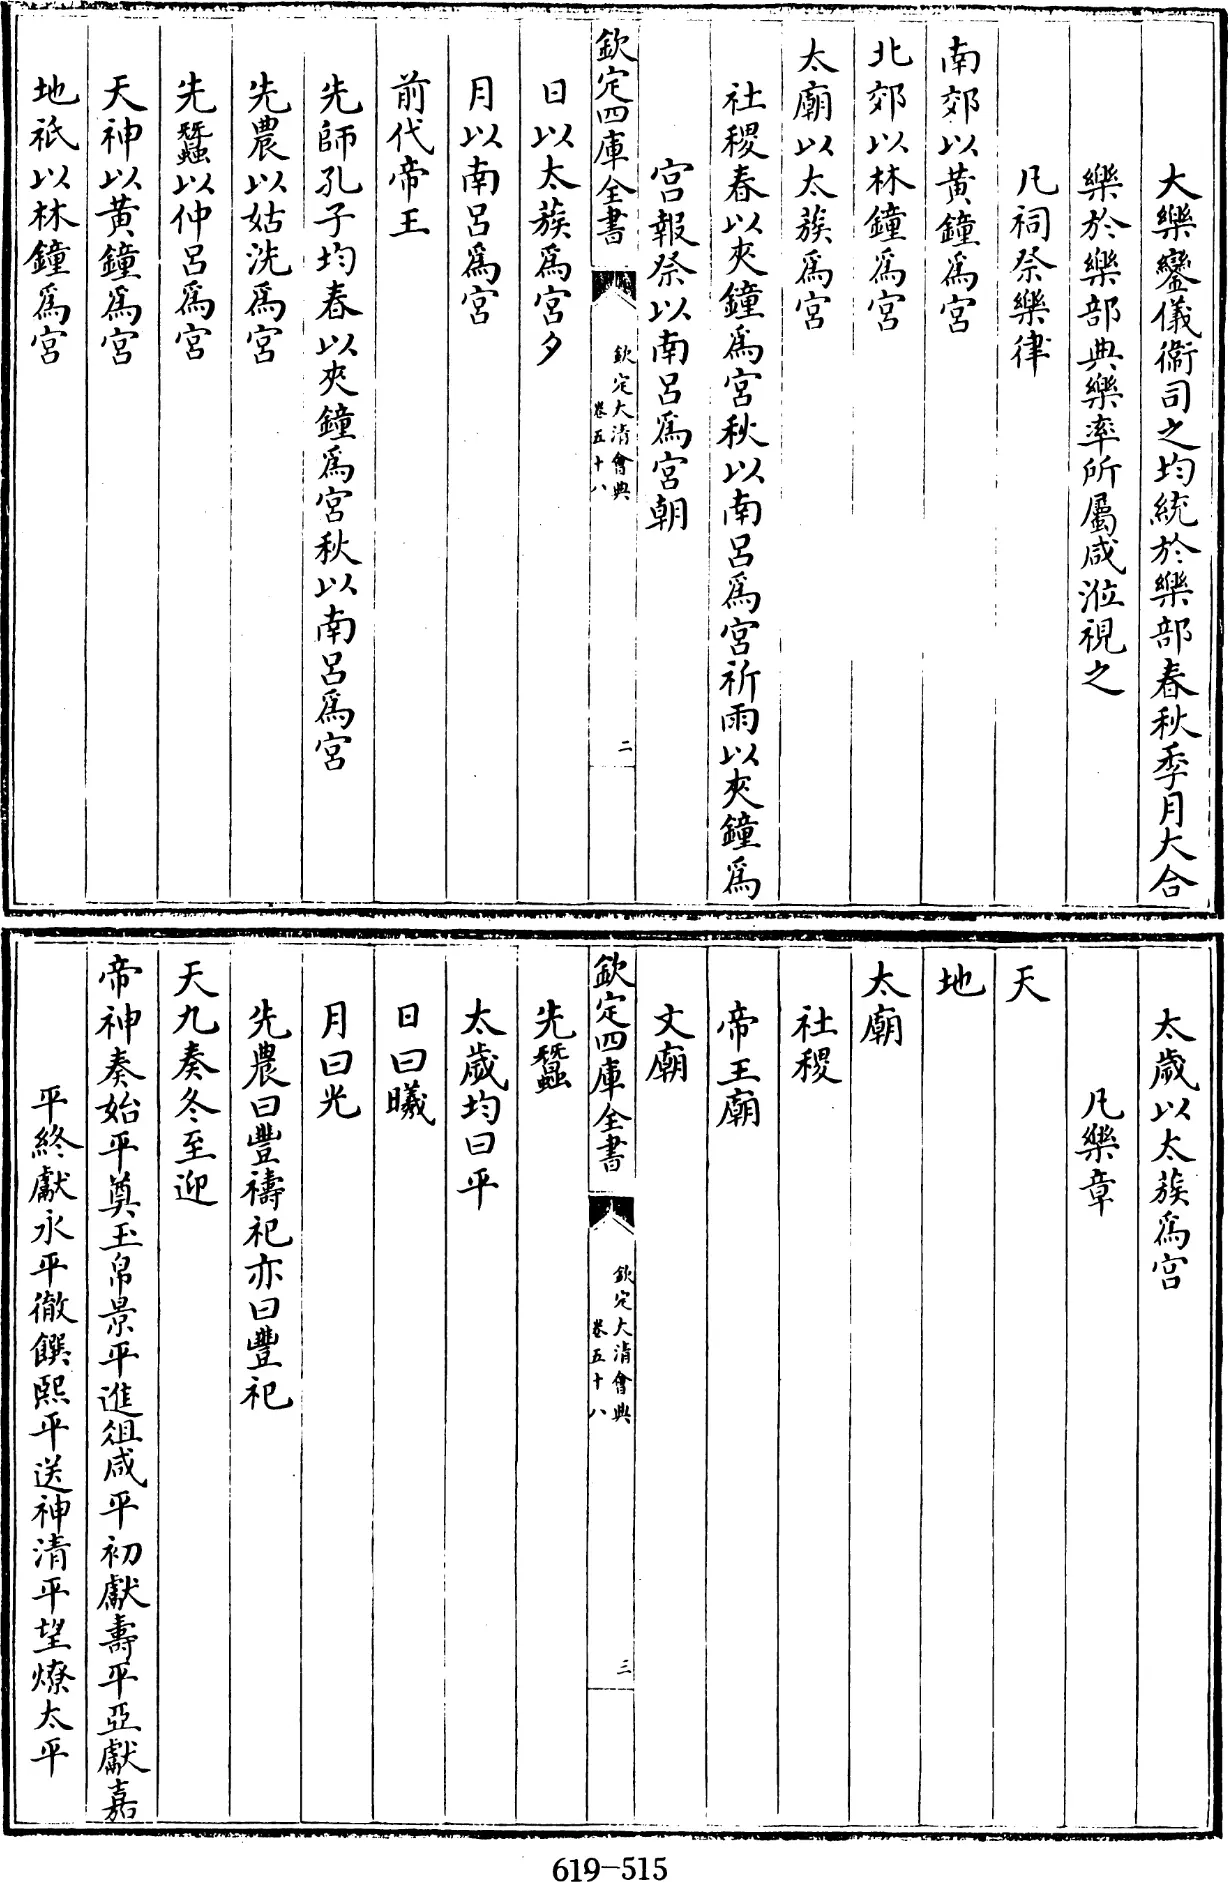 大樂鑾儀衞司之均統於樂部春秋季月大合
樂於樂部典樂率所屬咸涖視之
凡祠祭樂律
南郊以黃鐘爲宮
北郊以林鐘爲宮
太廟以太蔟爲宮
社稷春以夾鐘爲宮秋以南呂爲宮祈雨以夾鐘爲
宮報祭以南呂爲宮朝
欽定四庫全書
欽定大清會典
卷五十八
二
日以太蔟爲宮夕
月以南呂爲宮
前代帝王
先師孔子均春以夾鐘爲宮秋以南呂爲宮
先農以姑洗爲宮
先蠶以仲呂爲宮
天神以黃鐘爲宮
地祇以林鐘爲宮
太歲以太蔟爲宮
凡樂章
天
地
太廟
社稷
帝王廟
文廟
欽定四庫全書
欽定大清會典
卷五十八
三
先蠶
太歲均曰平
日曰曦
月曰光
先農曰豐禱祀亦曰豐祀
天九奏冬至迎
帝神奏始平奠玉帛景平進俎咸平初獻壽平亞獻嘉
平終獻永平徹饌熙平送神清平望燎太平
619-515